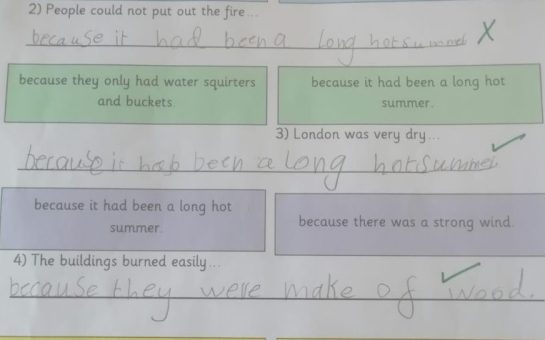 2) People could not put out the fire...
because it had been a long hot summer
because they only had water squirters
and buckets.
because it had been a long hot
summer.
3) London was very dry...
because it had been a long hot summer
because it had been a long hot
summer.
because there was a strong wind.
4) The buildings burned easily...
because they were make of wood.